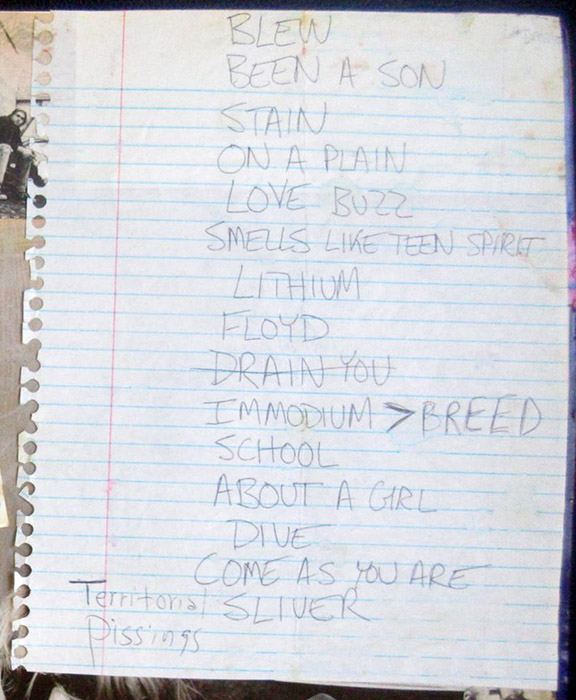 BLEW
BEEN A SON
STAIN
ON A PLAIN
LOVE BUZZ
SMELLS LIKE TEEN SPIRIT
LITHIUM
FLOYD
DRAIN YOU
IMMODIUM > BREED
SCHOOL
ABOUT A GIRL
DIVE
COME AS YOU ARE
SLIVER
Territorial
Pissings